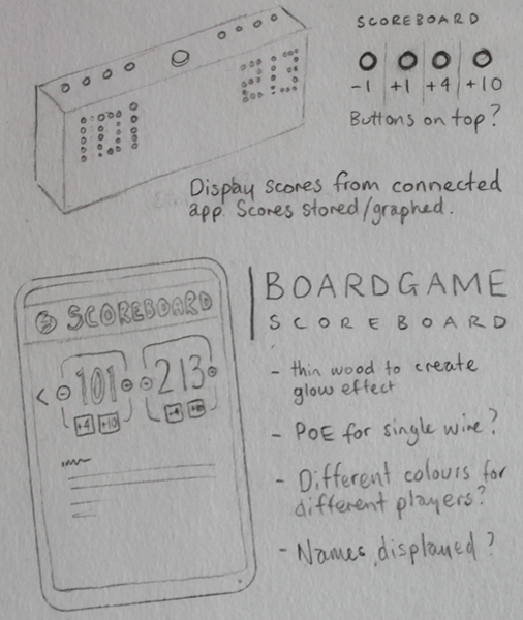 SCOREBOARD
-1 +1 +4 +10
Buttons on top?
Display scores from connected
app. Scores stored/graphed.
SCOREBOARD
< 101 213
+4 +10 +4 +10
BOARDGAME
SCOREBOARD
- thin wood to create
glow effect
- PoE for single wire?
- Different colours for
different players?
- Names displayed?